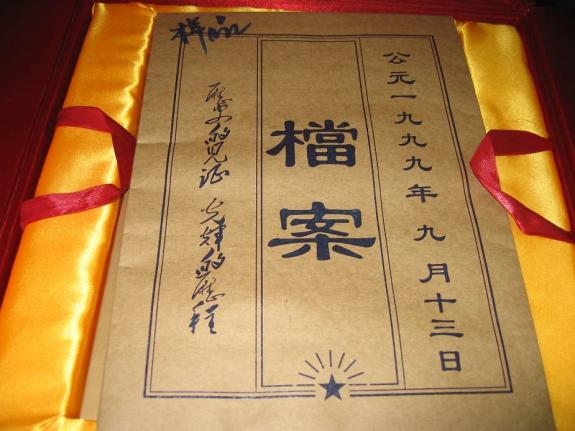 公元一九九九年九月十三日
檔案
歷史的見证 光辉的歷程
样品